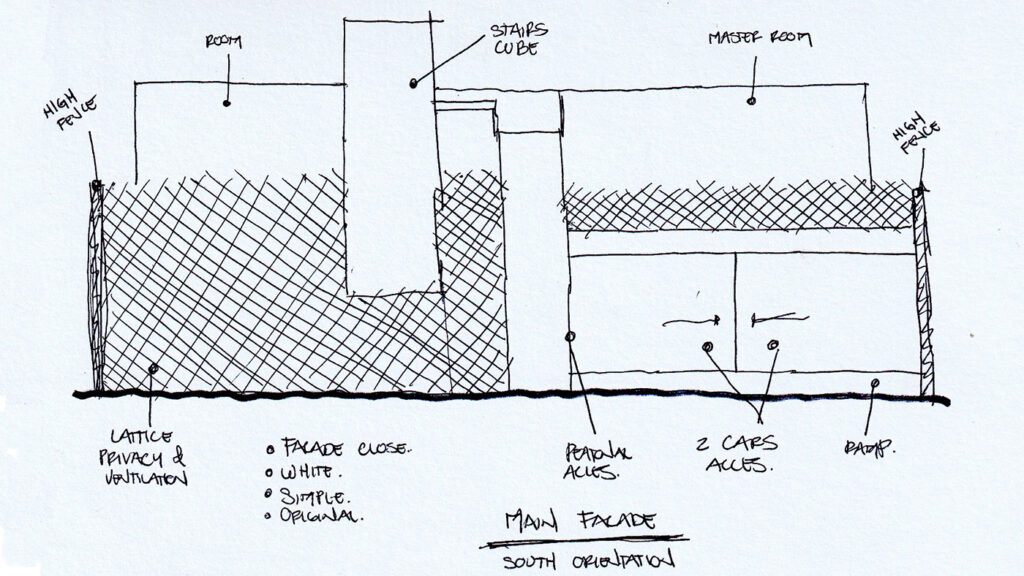 ROOM
STAIRS
CUBE
MASTER ROOM
HIGH
FENCE
HIGH
FENCE
LATTICE
PRIVACY &
VENTILATION
• FACADE CLOSE.
• WHITE.
• SIMPLE.
• ORIGINAL.
ACCES.
2 CARS
ACCES.
RAMP.
MAIN FACADE
SOUTH ORIENTATION